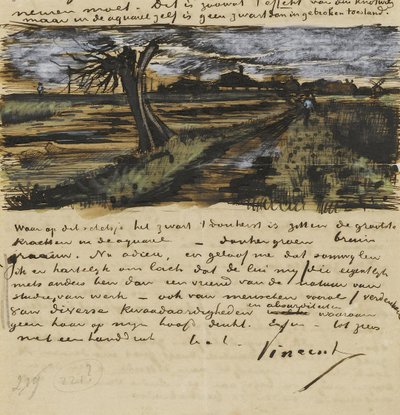 nemen moet. Dit is zoowat 't effekt van den knotwilg
maar in de aquarel zelf is geen zwart dan in gebroken toestand.
Waar op dit schetsje het zwart 't donkerst is zitten de grootste
krachten in de aquarel — donkergroen bruin
graauw. Nu adieu, en geloof me dat ik somwijlen
ik er hartelijk om lach dat de lui mij die eigenlijk
niets anders ben dan een vriend van de natuur van
studie, van werk — ook van menschen vooral / verdenken
van diverse kwaadaardigheden en absurditeiten waaraan
geen haar op mijn hoofd denkt. Enfin — tot ziens
met een handdruk t. à t.
Vincent